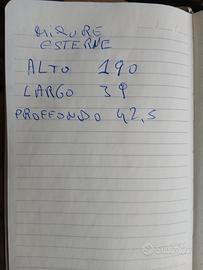 MISURE
ESTERNE
ALTO 190
LARGO 39
PROFFONDO 42,5
subito